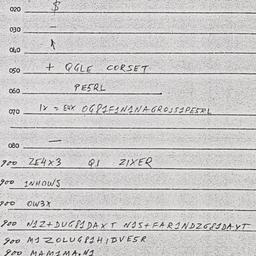 020 $
030 —
040
050 + QGLE CORSET
060 PE5RL
070 1X = EUX OG81F1N1NAGROSS1PE5RL
080 —
900 254X3 Q1 21XER
900 1NHOW5
900 OW3X
900 N1Z+DUG81DAXT N15+FAR1NDZG81DAXT
900 M1ZOLUG81H1DVE5R
900 MAM1MA.N1